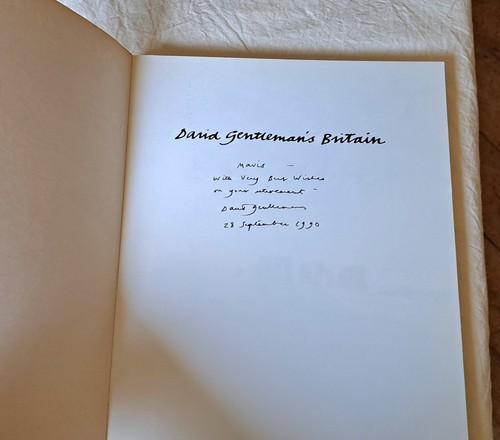 David Gentleman's Britain
Mavis —
With Very Best Wishes
on your retirement –
David Gentleman
28 September 1990